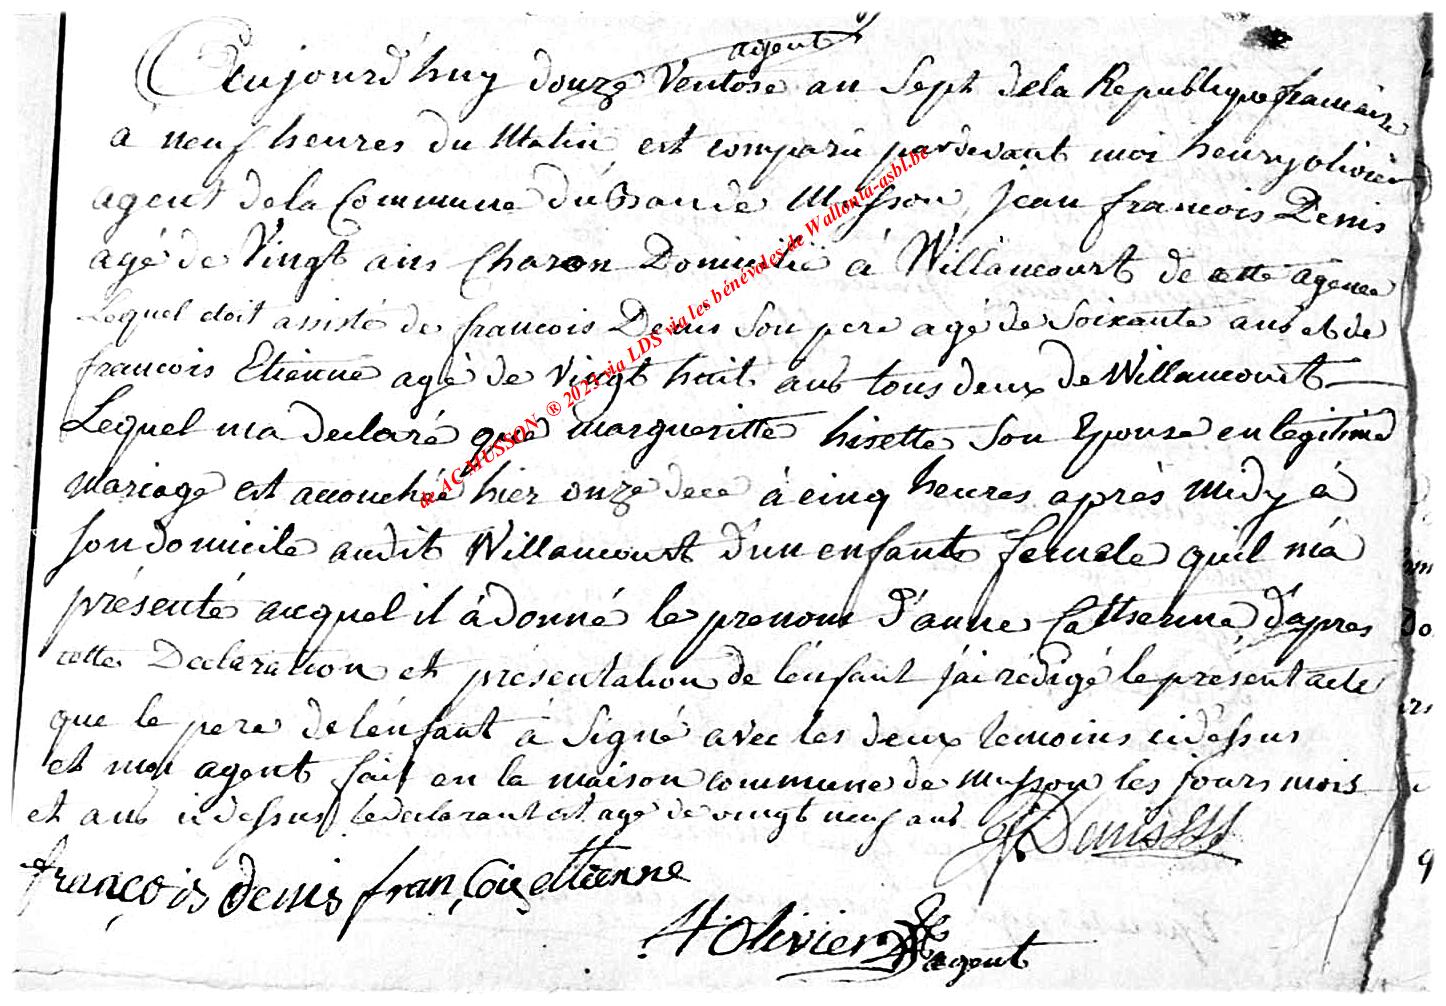 agent
Aujourd'huy douze Ventose an Sept dela Republique francaise
a neuf heures du Matin est comparu pardevant moi henry olivier
agent dela Commune du Ban de Musson, jean francois Denis
agé de Vingt ans Charon Domicilié à Willancourt de cette agence
Lequel etoit assisté de francois Denis Son pere agé de Soixante ans et de
francois Etienne agé de Vingt huit ans tous deux de Willancourt
Lequel ma declaré que margueritte hisette Son Epouse en legitime
Mariage est accouchée hier onze à cinq heures après midy à
Son domicile audit Willancourt d'un enfant femele quil m'à
présenté auquel il à donné le prenom d'anne Catherine d'apres
cette Declaration et présentation de l'énfant j'ai rédigé le présent acte
que le pere de lénfant à Signé avec les deux temoins cidessus
et moi agent fait en la maison commune de Musson les jours mois
et ans cidessus le declarant est agé de vingt neuf ans
JF Denis
françois denis françois ettienne
H Olivier agent
de AC MUSSON ® 2023 via LDS via les bénévoles de Wallonia-asbl.be